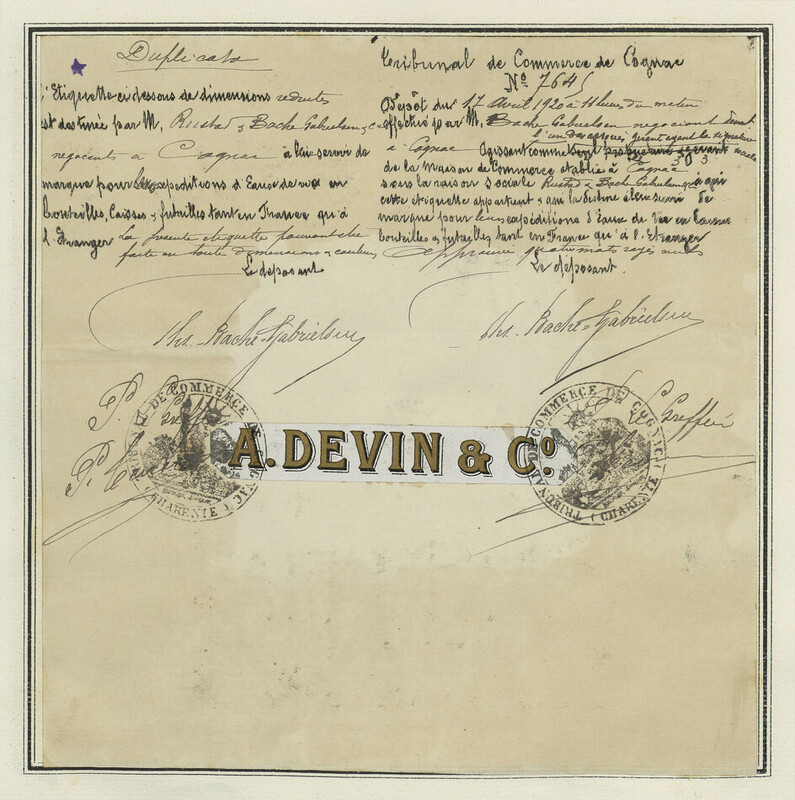 Duplicata
l'Etiquette ci-dessous de dimensions reduites
est destinée par M, Rustad & Bache Gabrielsen,
negociants à Cognac à lui servir de
marque pour expeditions d'Eaux de vie en
bouteilles, Caisses & futailles tant en France qu'à
l'Etranger La presente etiquette pouvant être
faite en toute dimensions & couleurs
Le déposant
Chs. Bache-Gabrielsen
Tribunal de Commerce de Cognac
No 7645
Dépôt du 17 Avril 1920 à 11 heures du matin
effectué par M, Bache Gabrielsen negociant
à Cognac Agissant comme
de la Maison de Commerce établie à Cognac
sous la raison sociale Rustad & Bache Gabrielsen à qui
cette étiquette appartient & qui la destine à leur servir de
marque pour leurs expéditions d'Eaux de Vie en Caisses
bouteilles & futailles tant en France qu'à l'Etranger
quatre mots rayés nuls
Le déposant.
Chs. Bache-Gabrielsen
P. Le Greffier
Le Greffier
TRIBUNAL DE COMMERCE DE COGNAC (CHARENTE)
A. DEVIN & Co
TRIBUNAL DE COMMERCE DE COGNAC (CHARENTE)